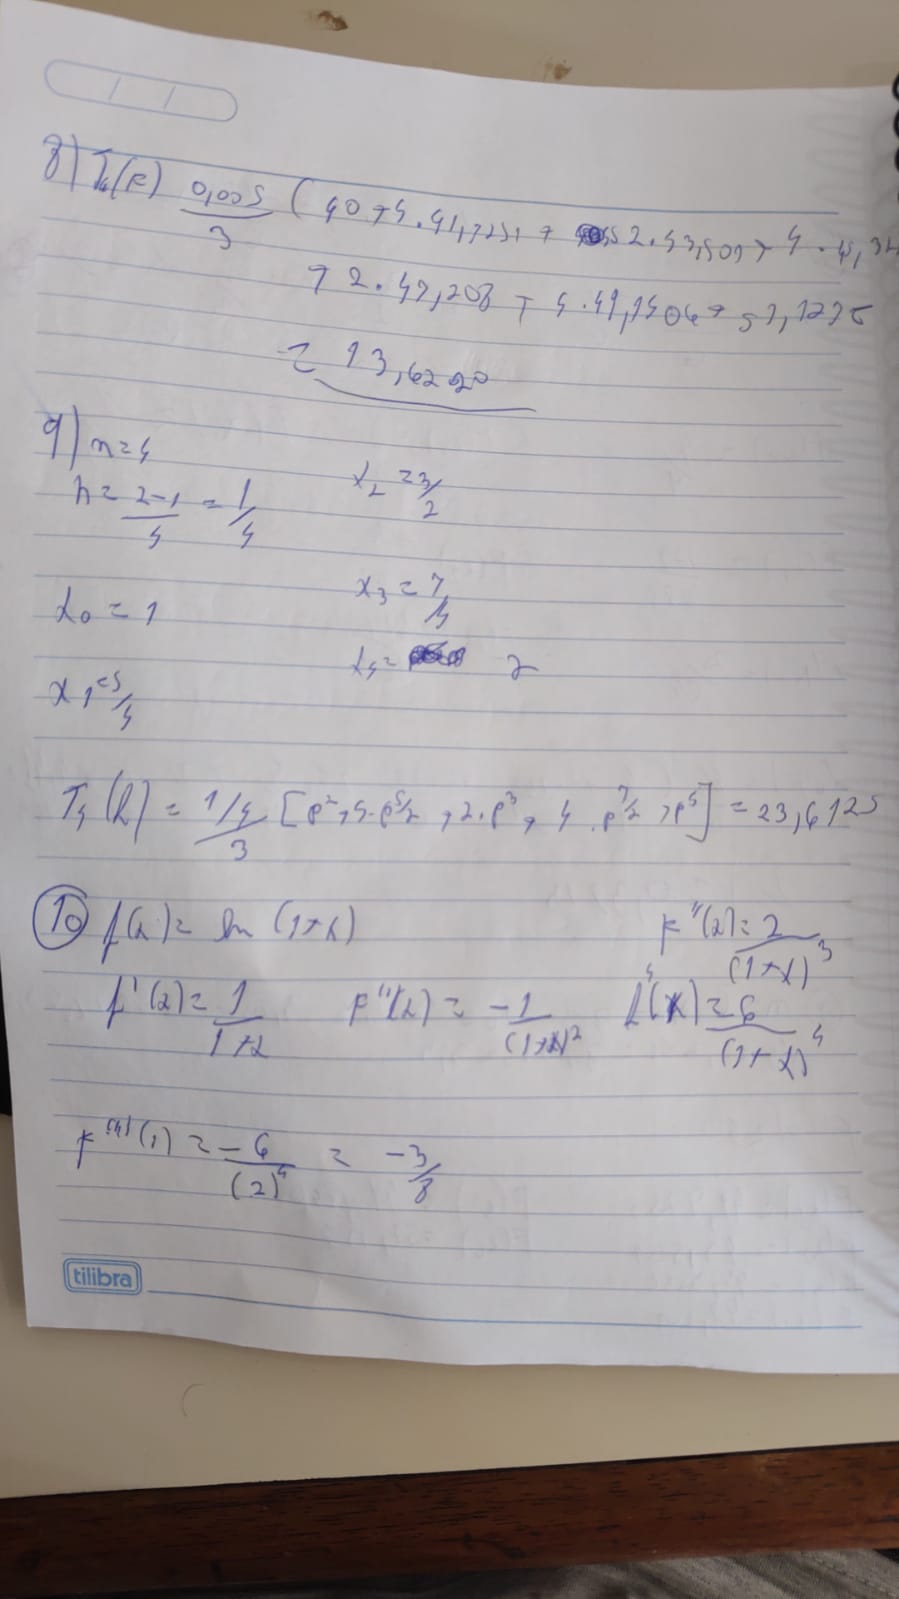 8) (0,005/3) ( 40 + 4.41,7231 + 2.43,509 + 4.
+ 2.47,208 + 4.49,1406 + 51,1275
= 13,6220
9) n=4
h = (2-1)/4 = 1/4 x₂ = 3/2
x₀ = 1 x₃ = 7/4
x₁ = 5/4 x₄ = 2
T₄(h) = (1/4)/3 [e² + 4.e^(5/2) + 2.e³ + 4.e^(7/2) + e⁴] = 23,6125
10 f(x) = ln (1+x) f'''(x) = 2/(1+x)³
f'(x) = 1/(1+x) f''(x) = -1/(1+x)² f⁴(x) = -6/(1+x)⁴
f⁽⁴⁾(1) = -6/(2)⁴ = -3/8
tilibra